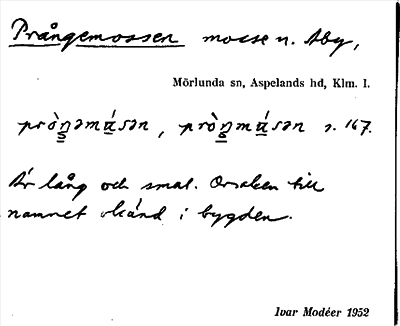 Prångemossen mosse n. Aby,
Mörlunda sn, Aspelands hd, Klm. l.
prò̀ŋəmúsən, prò̀ŋmúsən s. 167.
Är lång och smal. Orsaken till
namnet okänd i bygden.
Ivar Modéer 1952